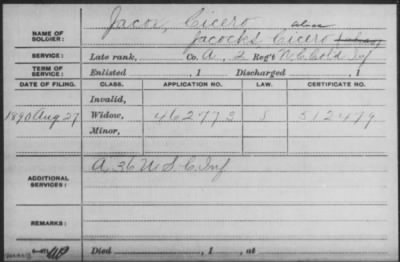 NAME OF SOLDIER: Jacox, Cicero alias
Jacocks Cicero
SERVICE: Late rank, Co. A, 2 Reg't N.C. Cold Inf
TERM OF SERVICE: Enlisted , 1 Discharged , 1
DATE OF FILING. CLASS. APPLICATION NO. LAW. CERTIFICATE NO.
Invalid,
1890 Aug 27 Widow, 462773 512479
Minor,
ADDITIONAL SERVICES: A 36 U S C Inf
REMARKS:
Died , 1 , at